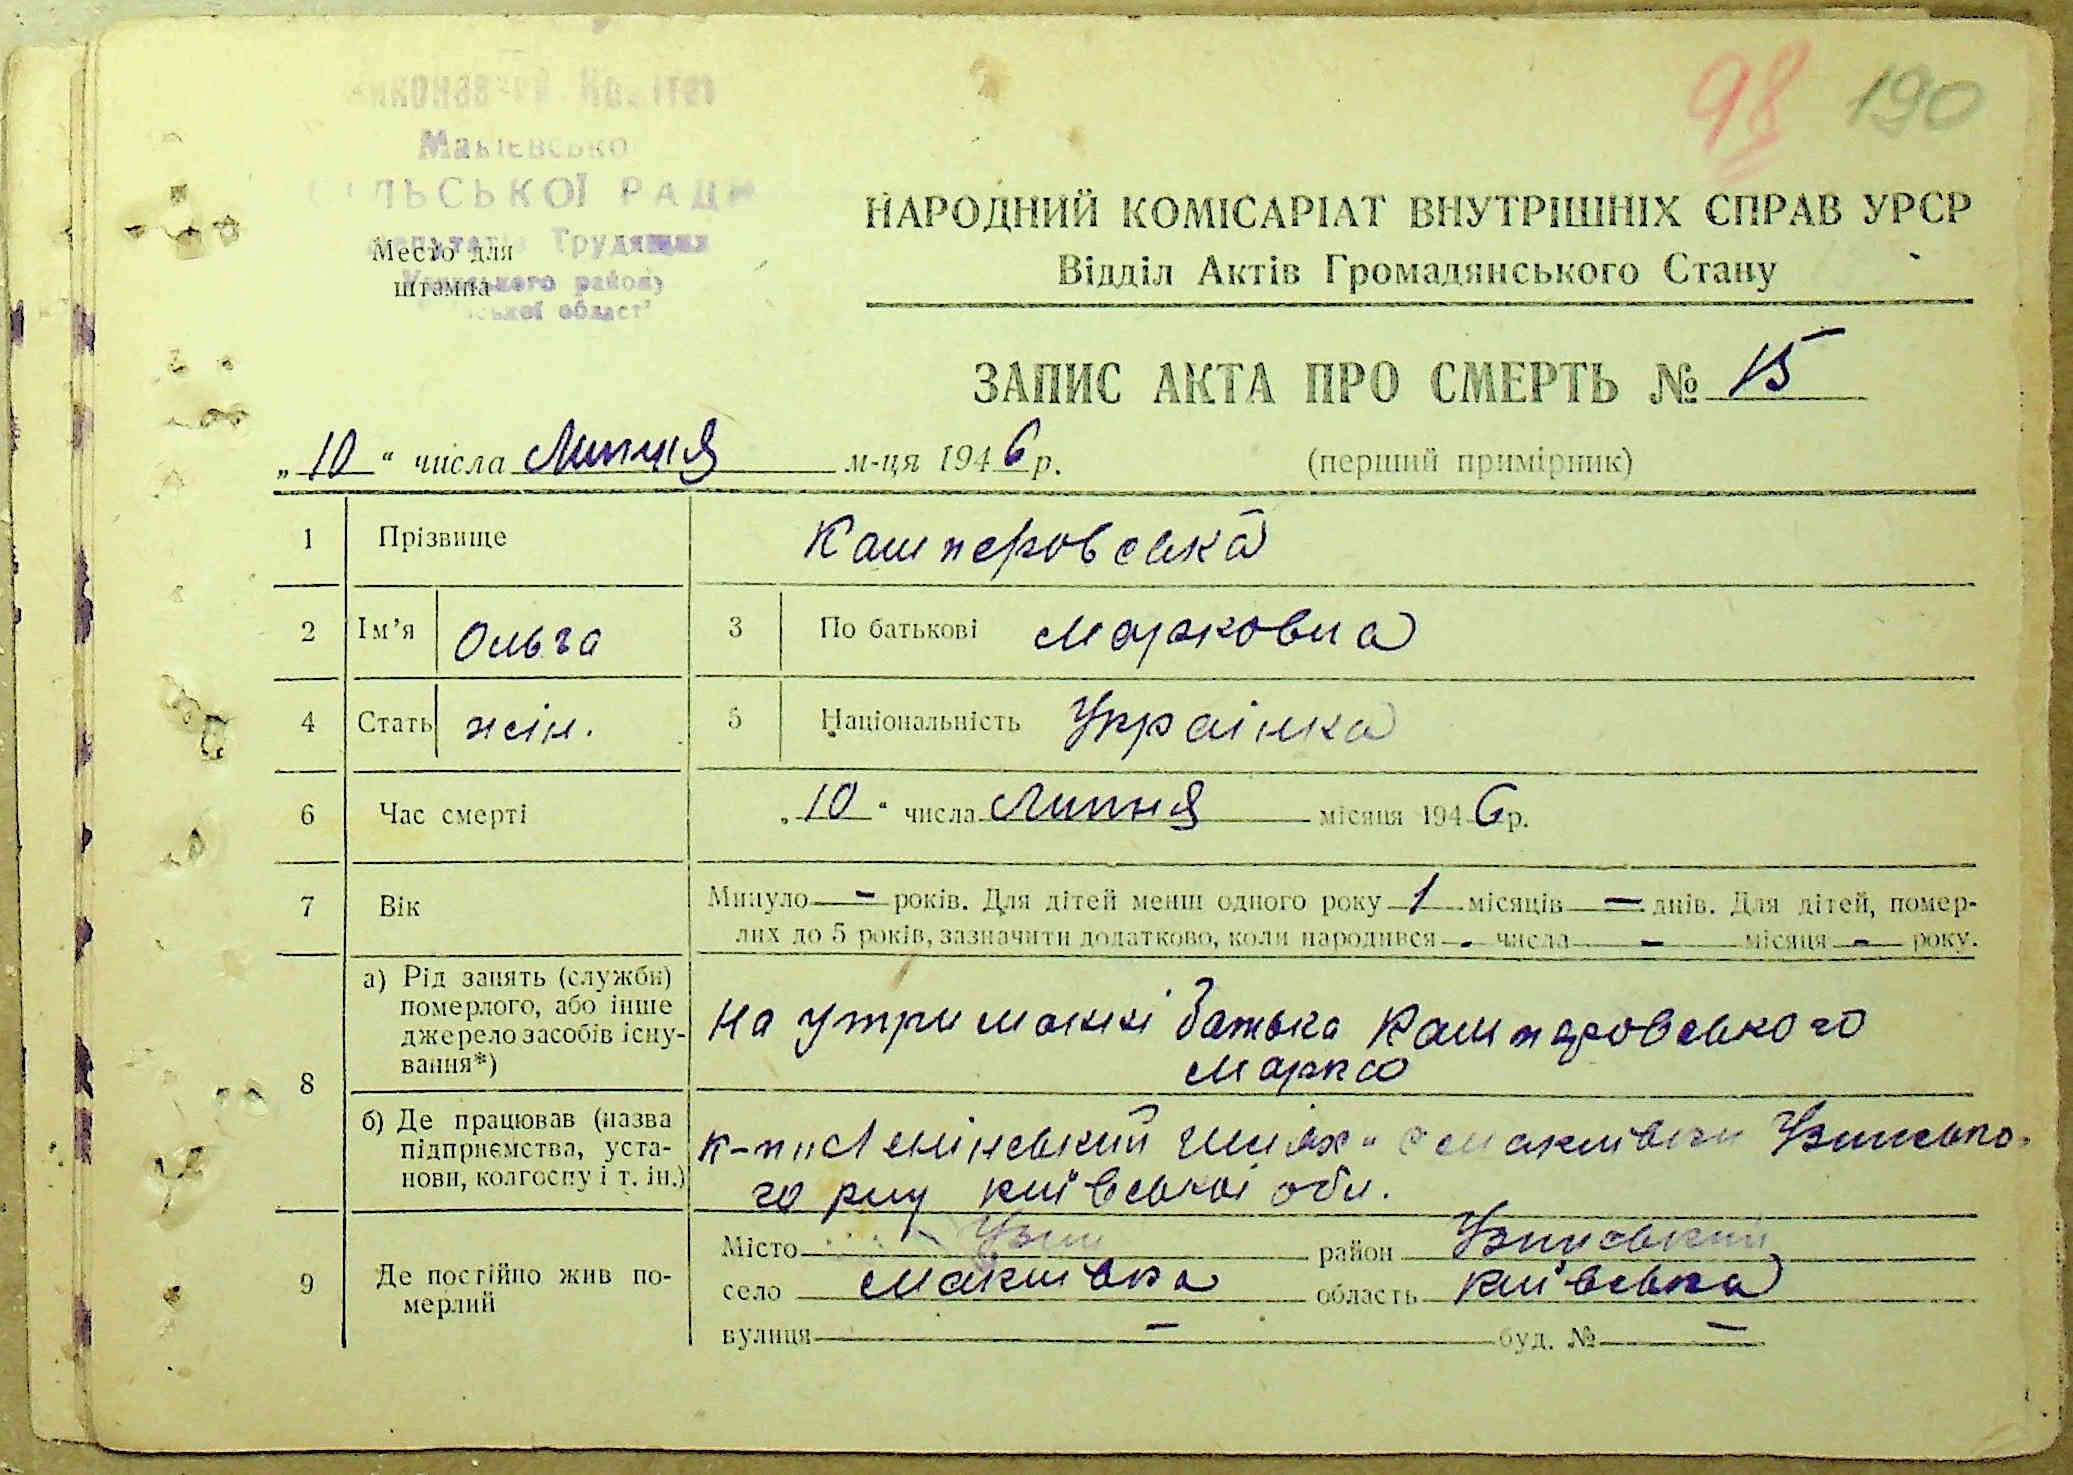 98 190
Макіевсько
СІЛЬСЬКОЇ РАДИ
депутатів Трудящих
району
області
Место для
штампа
НАРОДНИЙ КОМІСАРІАТ ВНУТРІШНІХ СПРАВ УРСР
Відділ Актів Громадянського Стану
ЗАПИС АКТА ПРО СМЕРТЬ № 15
„10“ числа Липня м-ця 1946 р. (перший примірник)
1 Прізвище Кашперовська
2 Ім’я Ольга 3 По батькові Марковна
4 Стать жін. 5 Національність Українка
6 Час смерті „10“ числа Липня місяця 1946 р.
7 Вік Минуло — років. Для дітей менш одного року 1 місяців — днів. Для дітей, помер-
лих до 5 років, зазначити додатково, коли народився - числа - місяця - року.
8 а) Рід занять (служби)
померлого, або інше
джерело засобів існу-
вання*)
На утриманні батька Кашперовського
Марка
б) Де працював (назва
підприємства, уста-
нови, колгоспу і т. ін.)
к-п „Ленінський шлях“ с Макиївки Узинсько-
го р-ну київської обл.
9 Де постійно жив по-
мерлий
Місто Узин район Узинський
село Макиївка область київська
вулиця — буд. № —